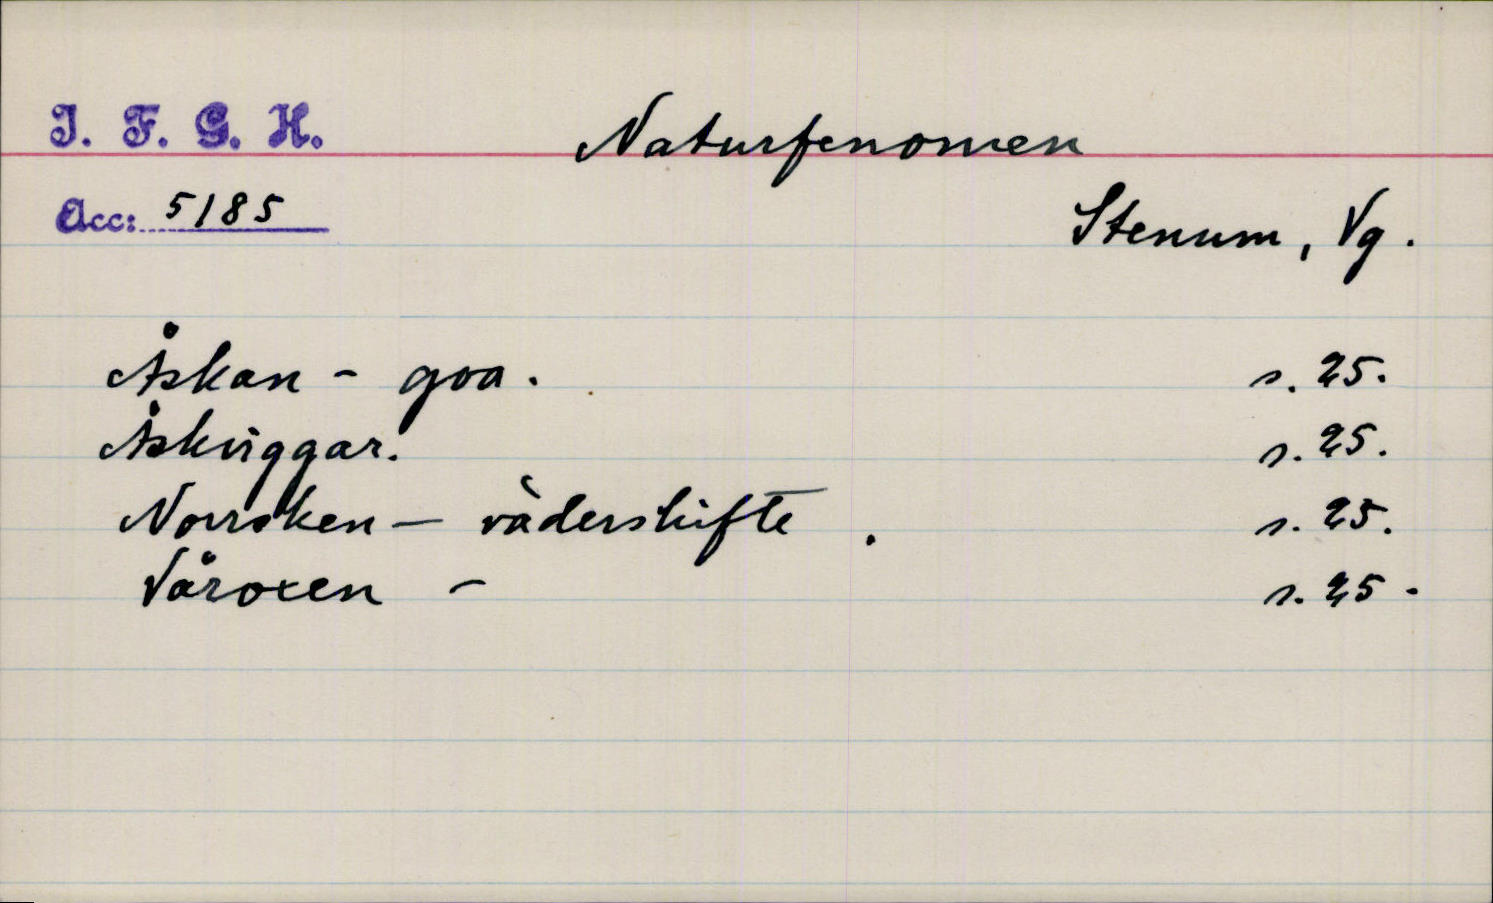 I. F. G. H.
Naturfenomen
Acc: 5185
Stenum, Vg.
Åskan - goa. s. 25.
Åskviggar. s. 25.
Norrsken - väderskifte. s. 25.
Våroxen - s. 25.